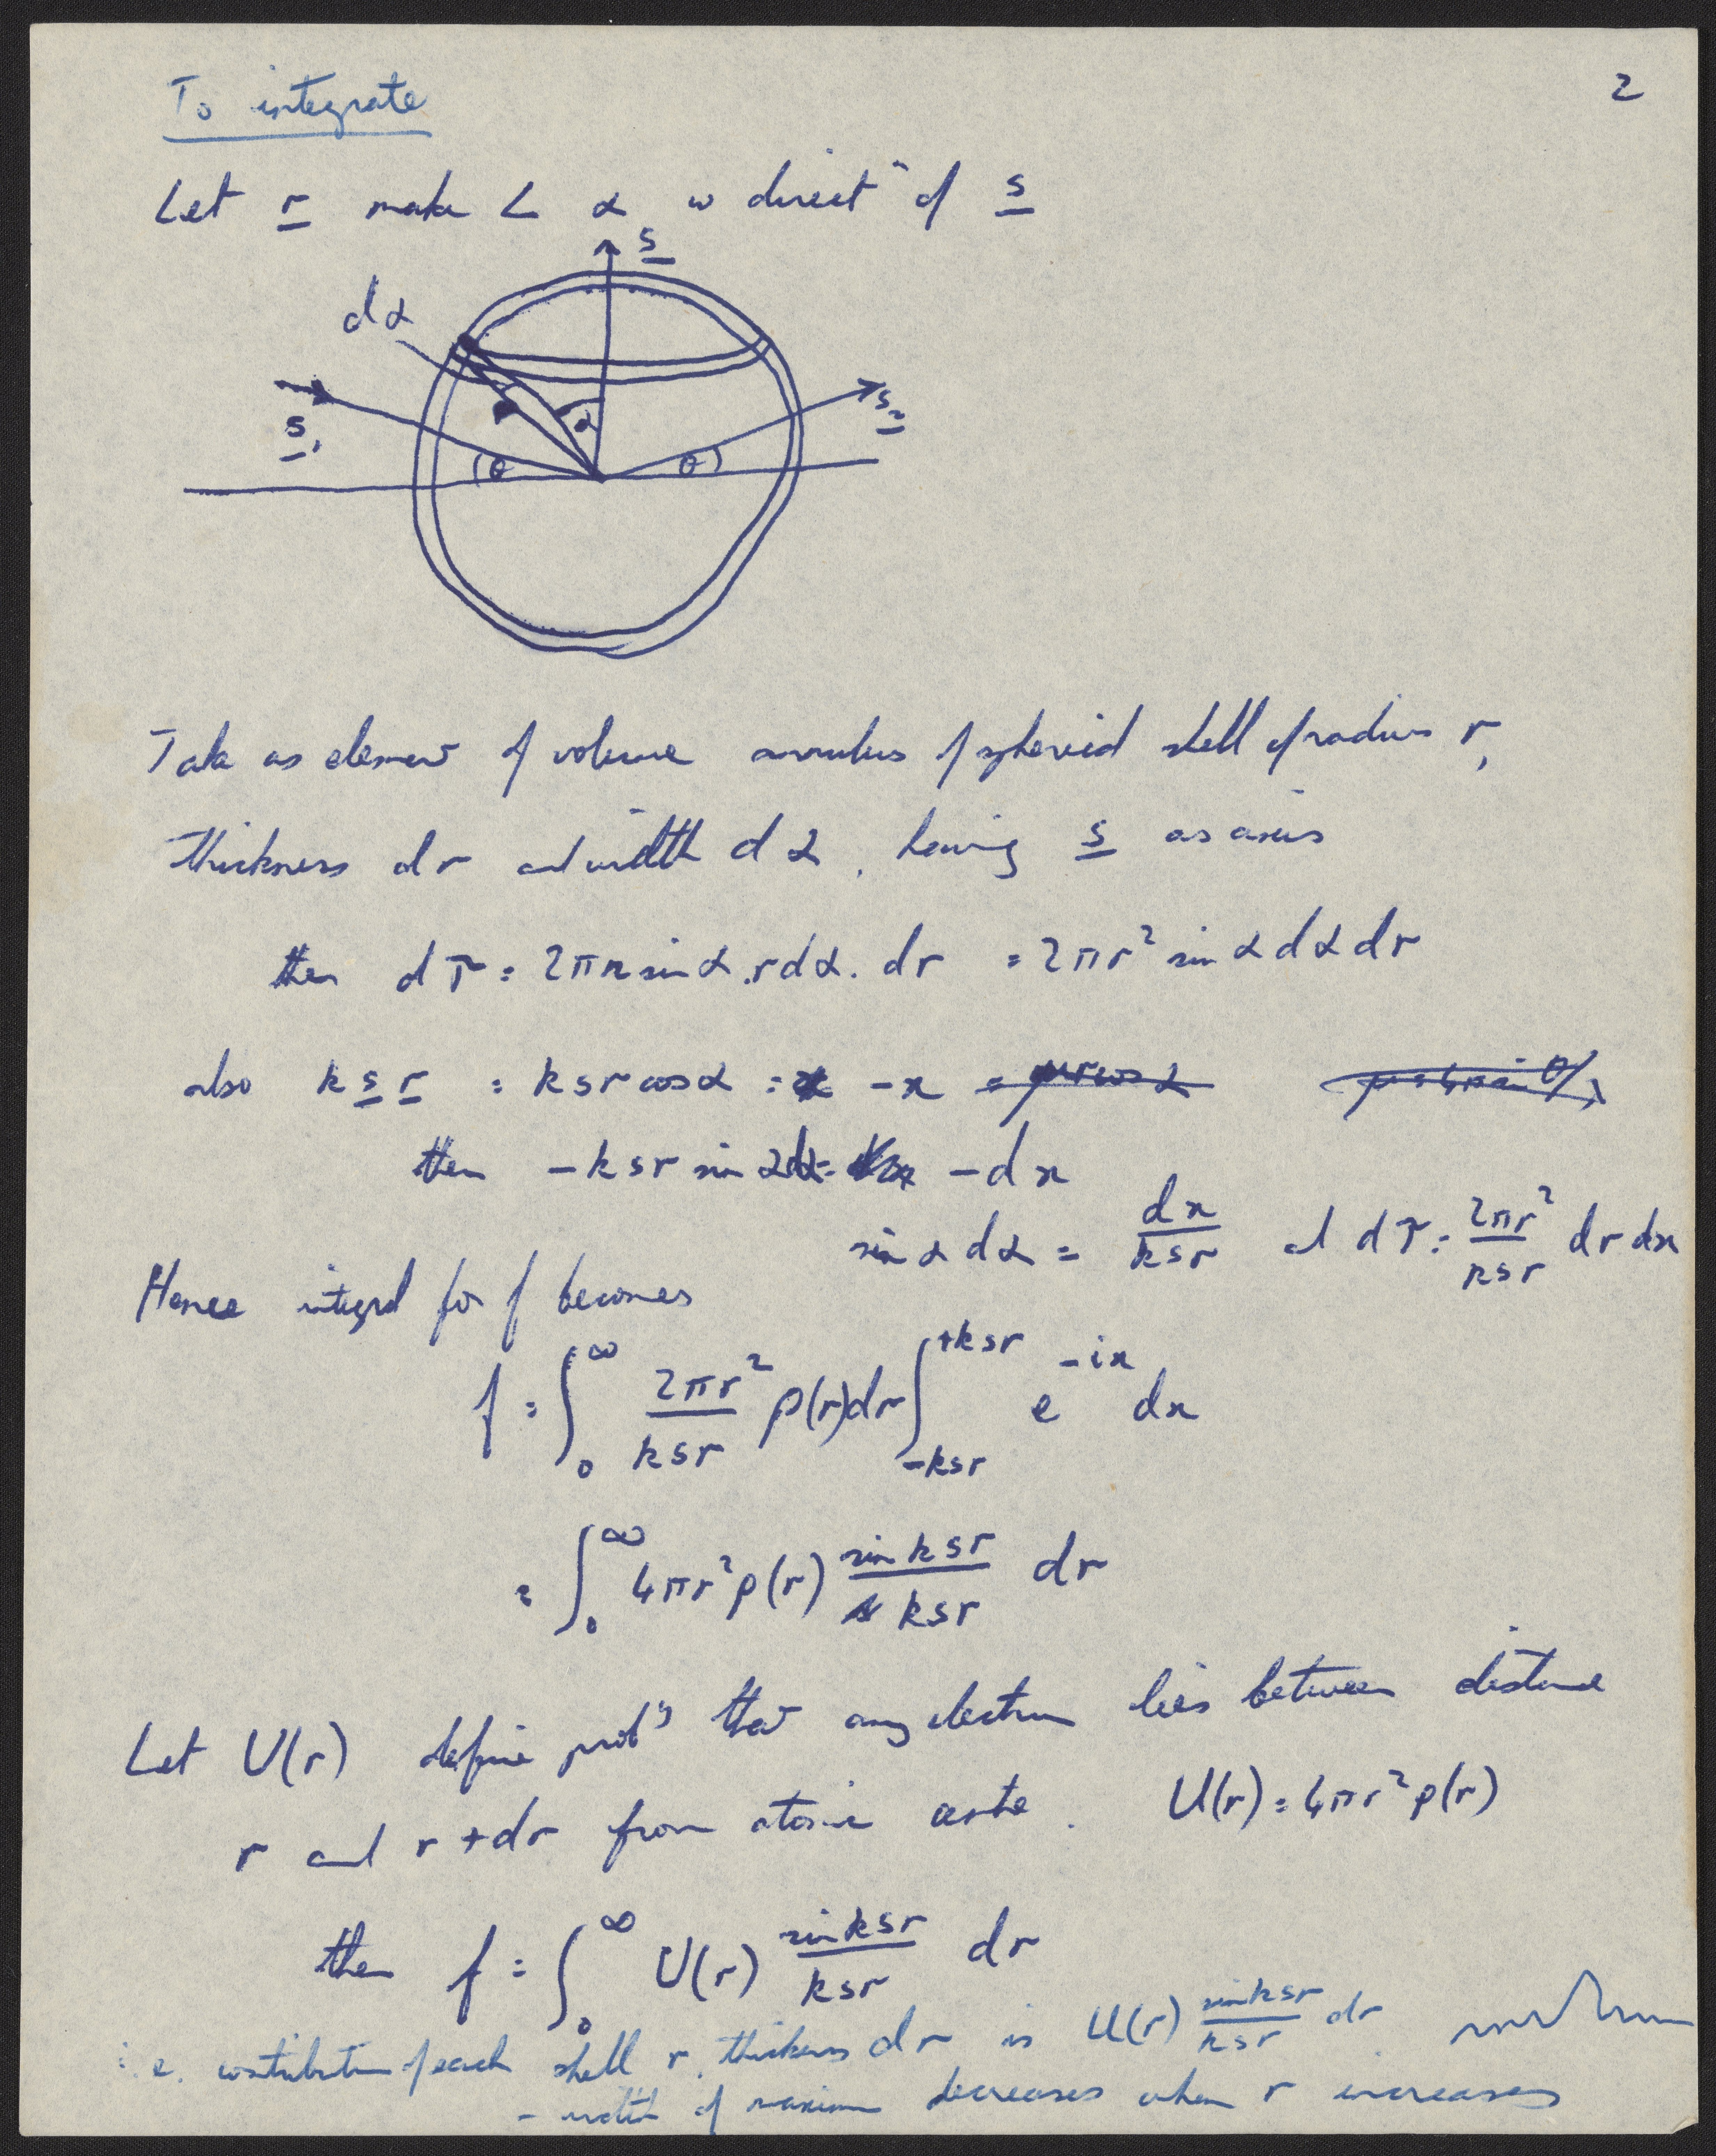 2
To integrate
Let r make ∠ α w directⁿ of s
s
dα
α
s₁
s₂
θ
θ
Take as element of volume annulus of spheroid shell of radius r,
thickness dr and width dα, having s as axis
then dτ = 2πr sin α . r dα . dr = 2πr² sin α dα dr
also k s r = ksr cos α = -x = μr cos α
then -ksr sin α dα = -dx
sin α dα = dx/ksr and dτ = 2πr²/ksr dr dx
Hence integral for f becomes
f = ∫₀^∞ 2πr²/ksr ρ(r)dr ∫_{-ksr}^{+ksr} e^{-ix} dx
= ∫₀^∞ 4πr²ρ(r) sin ksr/ksr dr
Let U(r) define prob'y that any electron lies between distance
r and r + dr from atomic centre. U(r) = 4πr²ρ(r)
then f = ∫₀^∞ U(r) sin ksr/ksr dr
i.e. contribution of each shell r, thickness dr is U(r) sin ksr/ksr dr.
- width of maximum decreases when r increases